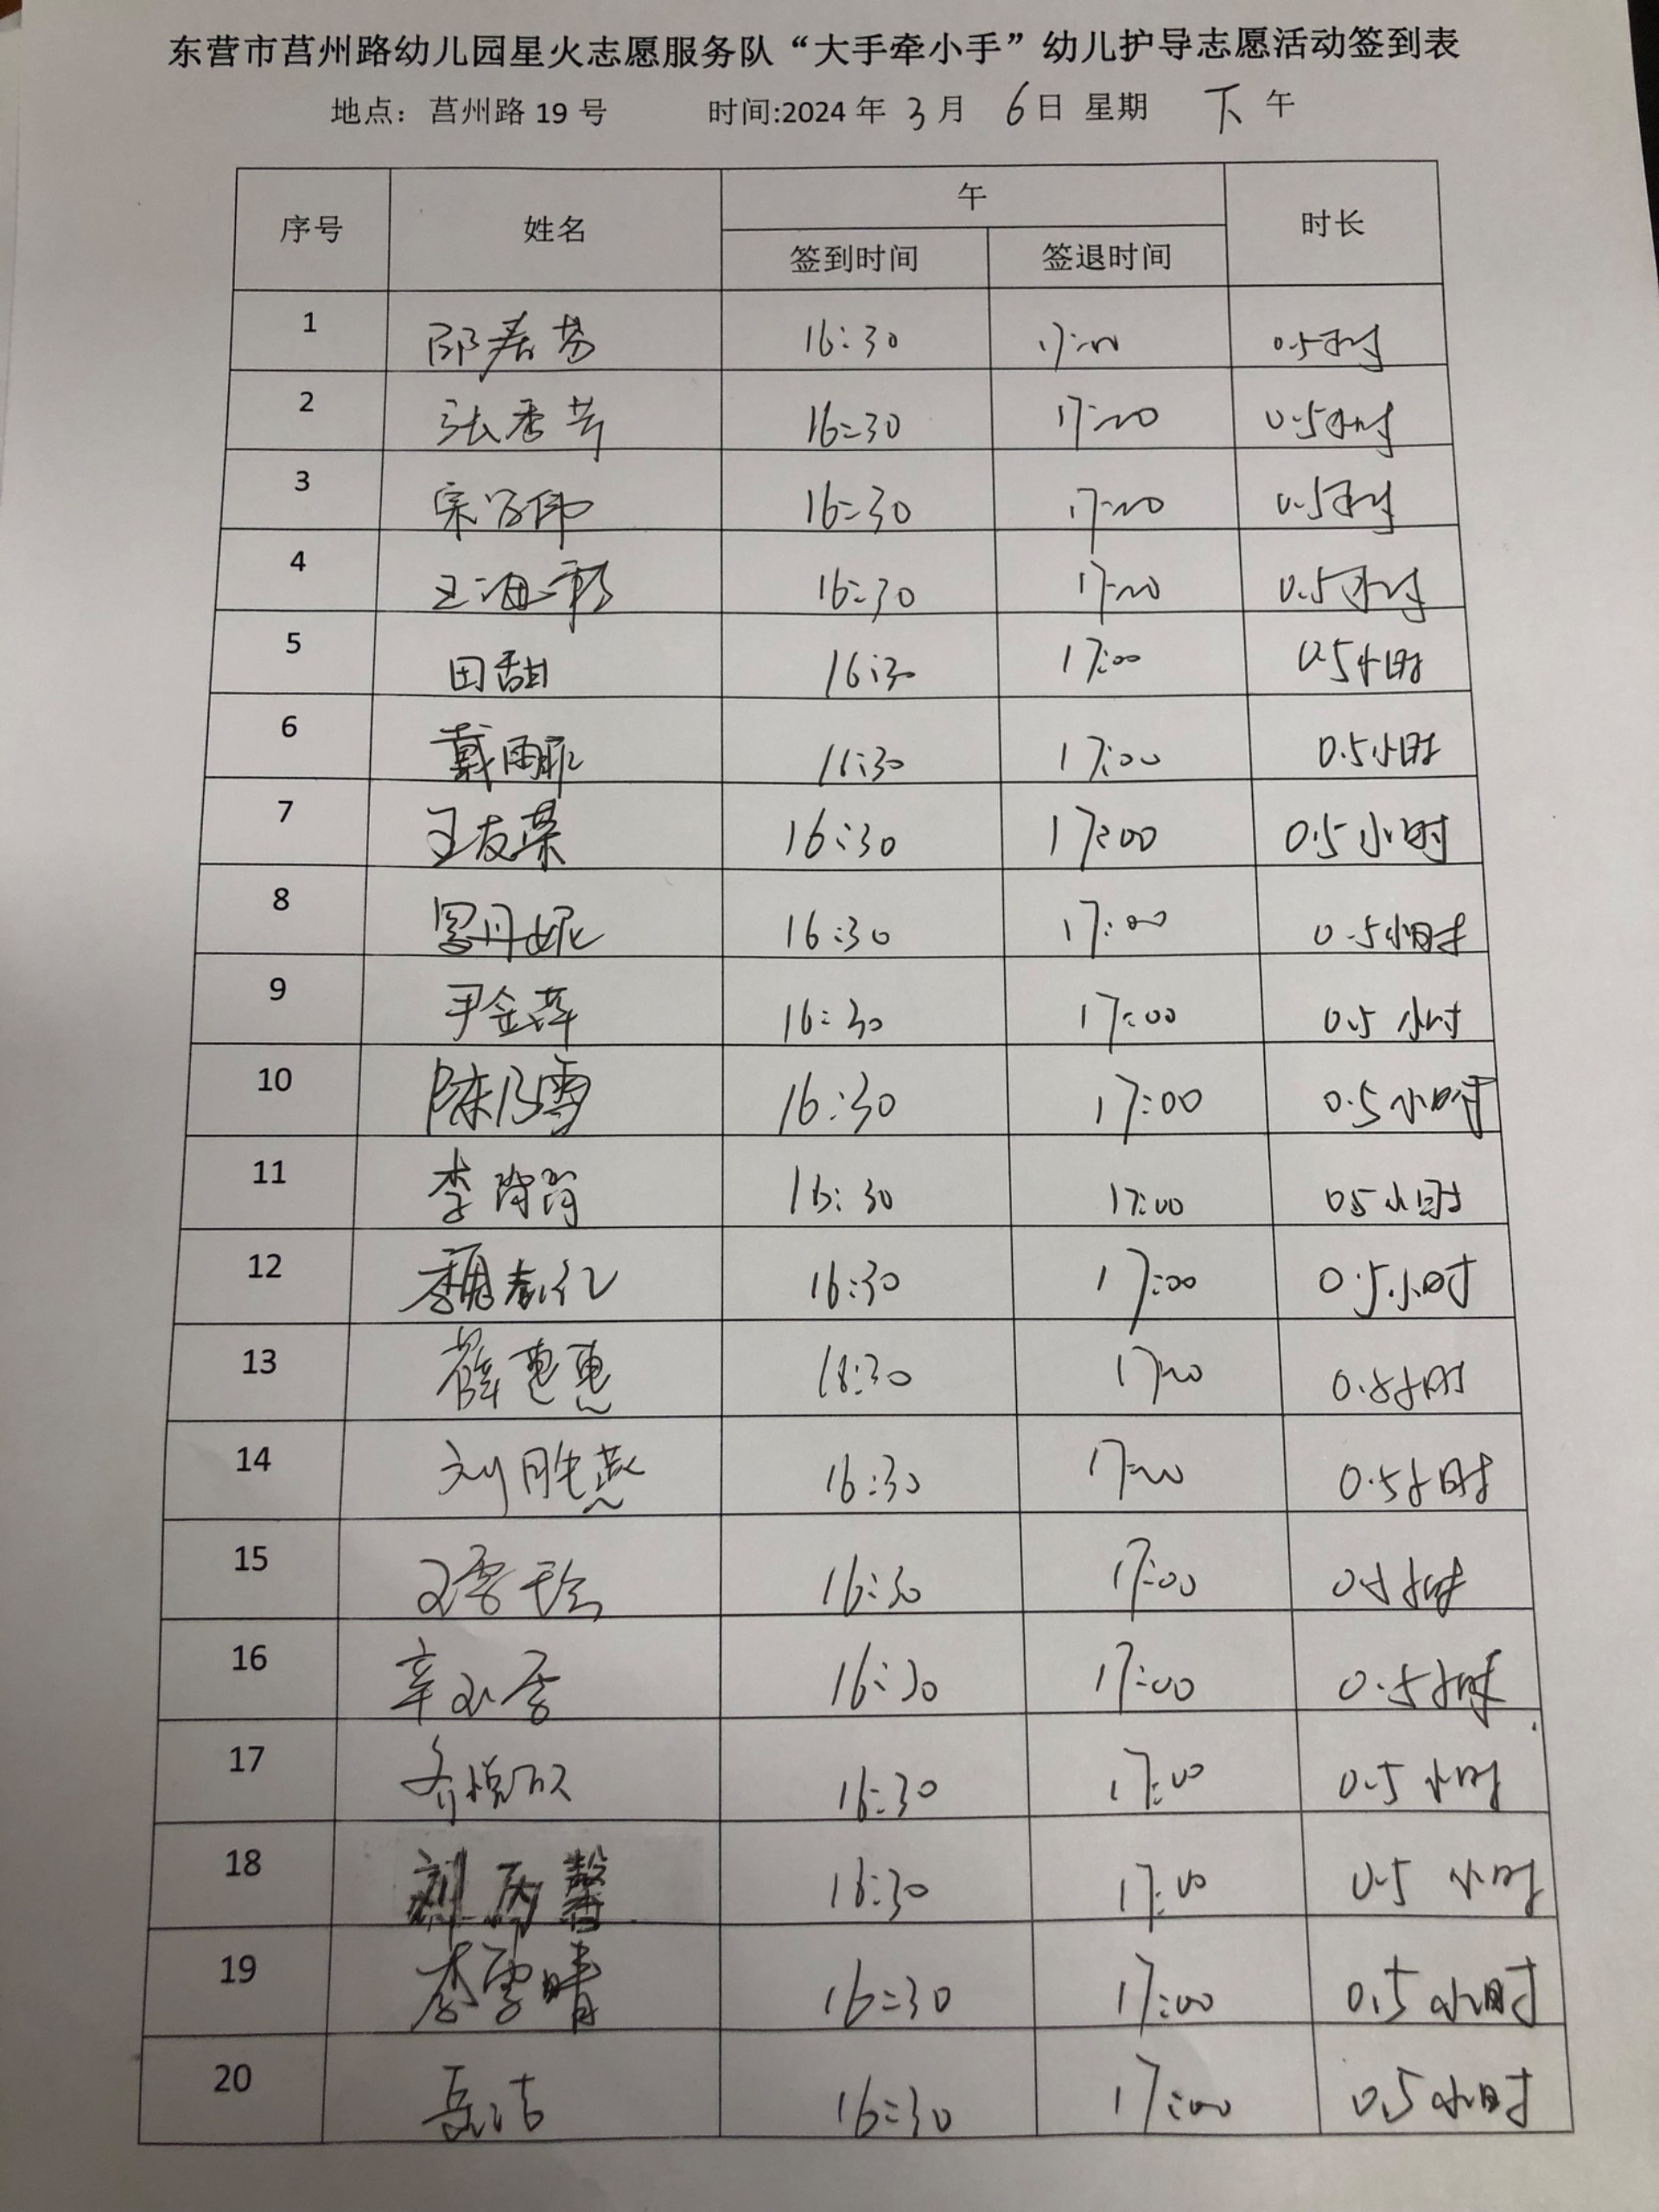 东营市莒州路幼儿园星火志愿服务队“大手牵小手”幼儿护导志愿活动签到表
地点：莒州路 19 号 时间:2024 年 3 月 6 日 星期 下 午
序号 姓名 午 时长
签到时间 签退时间
1 邵春芳 16:30 17:00 0.5小时
2 张秀芳 16:30 17:00 0.5小时
3 16:30 17:00 0.5小时
4 王海彩 16:30 17:00 0.5小时
5 田甜 16:30 17:00 0.5小时
6 戴雨菲 16:30 17:00 0.5小时
7 王友荣 16:30 17:00 0.5小时
8 罗丹妮 16:30 17:00 0.5小时
9 尹金萍 16:30 17:00 0.5小时
10 陈乃雪 16:30 17:00 0.5小时
11 李 16:30 17:00 0.5小时
12 魏春红 16:30 17:00 0.5小时
13 薛惠惠 16:30 17:00 0.5小时
14 刘胜燕 16:30 17:00 0.5小时
15 16:30 17:00 0.5小时
16 辛 16:30 17:00 0.5小时
17 齐悦 16:30 17:00 0.5小时
18 刘丙馨 16:30 17:00 0.5小时
19 李雪晴 16:30 17:00 0.5小时
20 岳洁 16:30 17:00 0.5小时